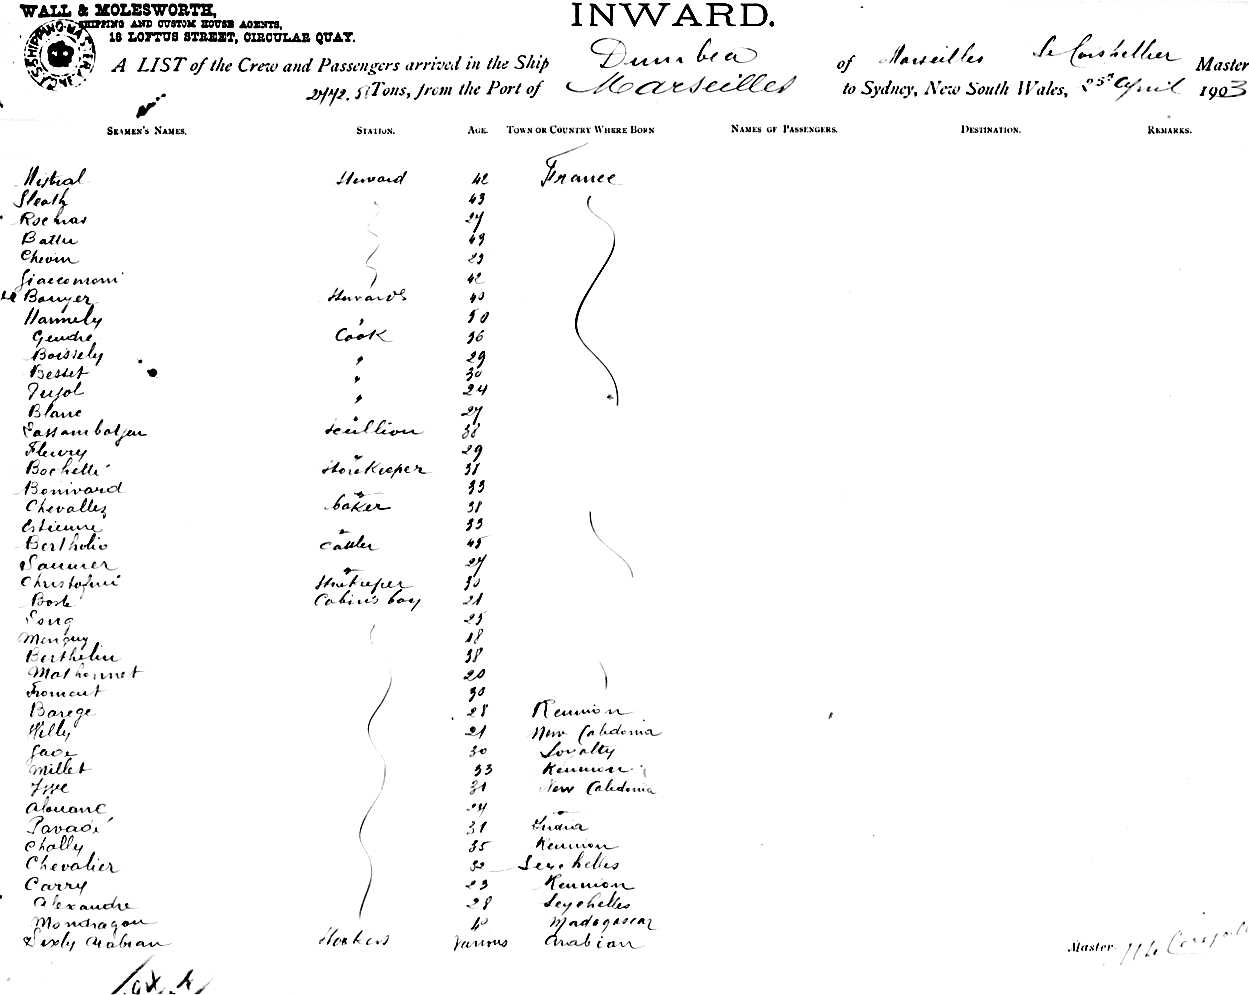 WALL & MOLESWORTH,
SHIPPING AND CUSTOM HOUSE AGENTS,
18 LOFTUS STREET, CIRCULAR QUAY.
INWARD.
A LIST of the Crew and Passengers arrived in the Ship Dumbea of Marseilles Master
Tons, from the Port of Marseilles to Sydney, New South Wales, 25th April 1903
SEAMEN'S NAMES. STATION. AGE. TOWN OR COUNTRY WHERE BORN NAMES OF PASSENGERS. DESTINATION. REMARKS.
Mistral Steward 42 France
Sleath 43
27
Battu 49
23
Giaccomoni 42
Le Bouyer Stewards 40
Hamely 50
Gendre Cook 36
Boissely " 29
Besset " 30
Pujol " 24
Blanc " 27
scullion 38
Fleury " 29
Storekeeper 38
Bonivard " 33
Chevallez baker 38
Estienne " 33
Bertholio 45
Saunier " 27
Christofini Storekeeper 30
Cabin's boy 21
25
Menguy 18
Berthelin 38
Mathonnet 20
Fromont 30
Barege 28 Reunion
Willy 21 New Caledonia
30 Loyalty
Millet 33 Reunion
31 New Caledonia
Alouane 24 "
Pavadi 31 India
Chally 35 Reunion
Chevalier 32 Seychelles
Carry 23 Reunion
Alexandre 28 Seychelles
Mondragon 40 Madagascar
Sixty Arabian Stokers various Arabian
Master